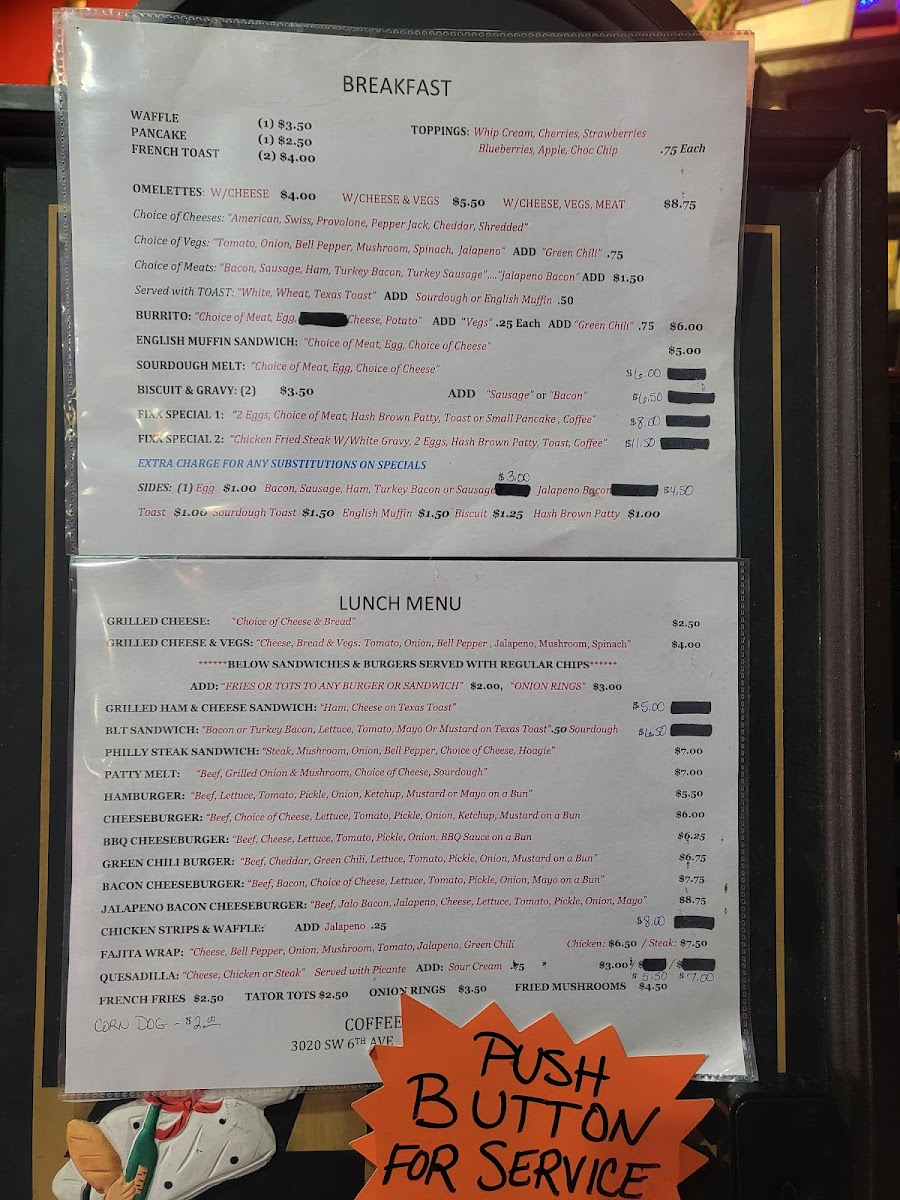 BREAKFAST
WAFFLE (1) $3.50
PANCAKE (1) $2.50
FRENCH TOAST (2) $4.00
TOPPINGS: Whip Cream, Cherries, Strawberries
Blueberries, Apple, Choc Chip .75 Each
OMELETTES: W/CHEESE $4.00 W/CHEESE & VEGS $5.50 W/CHEESE, VEGS, MEAT $8.75
Choice of Cheeses: "American, Swiss, Provolone, Pepper Jack, Cheddar, Shredded"
Choice of Vegs: "Tomato, Onion, Bell Pepper, Mushroom, Spinach, Jalapeno" ADD "Green Chili" .75
Choice of Meats: "Bacon, Sausage, Ham, Turkey Bacon, Turkey Sausage"...."Jalapeno Bacon" ADD $1.50
Served with TOAST: "White, Wheat, Texas Toast" ADD Sourdough or English Muffin .50
BURRITO: "Choice of Meat, Egg, Cheese, Potato" ADD "Vegs" .25 Each ADD "Green Chili" .75 $6.00
ENGLISH MUFFIN SANDWICH: "Choice of Meat, Egg, Choice of Cheese" $5.00
SOURDOUGH MELT: "Choice of Meat, Egg, Choice of Cheese" $6.00
BISCUIT & GRAVY: (2) $3.50 ADD "Sausage" or "Bacon" $6.50
FIXX SPECIAL 1: "2 Eggs, Choice of Meat, Hash Brown Patty, Toast or Small Pancake , Coffee" $8.00
FIXX SPECIAL 2: "Chicken Fried Steak W/White Gravy, 2 Eggs, Hash Brown Patty, Toast, Coffee" $11.50
EXTRA CHARGE FOR ANY SUBSTITUTIONS ON SPECIALS
SIDES: (1) Egg $1.00 Bacon, Sausage, Ham, Turkey Bacon or Sausage $3.00 Jalapeno Bacon $4.50
Toast $1.00 Sourdough Toast $1.50 English Muffin $1.50 Biscuit $1.25 Hash Brown Patty $1.00
LUNCH MENU
GRILLED CHEESE: "Choice of Cheese & Bread" $2.50
GRILLED CHEESE & VEGS: "Cheese, Bread & Vegs: Tomato, Onion, Bell Pepper , Jalapeno, Mushroom, Spinach" $4.00
******BELOW SANDWICHES & BURGERS SERVED WITH REGULAR CHIPS******
ADD: "FRIES OR TOTS TO ANY BURGER OR SANDWICH" $2.00, "ONION RINGS" $3.00
GRILLED HAM & CHEESE SANDWICH: "Ham, Cheese on Texas Toast" $5.00
BLT SANDWICH: "Bacon or Turkey Bacon, Lettuce, Tomato, Mayo Or Mustard on Texas Toast" .50 Sourdough $6.50
PHILLY STEAK SANDWICH: "Steak, Mushroom, Onion, Bell Pepper, Choice of Cheese, Hoagie" $7.00
PATTY MELT: "Beef, Grilled Onion & Mushroom, Choice of Cheese, Sourdough" $7.00
HAMBURGER: "Beef, Lettuce, Tomato, Pickle, Onion, Ketchup, Mustard or Mayo on a Bun" $5.50
CHEESEBURGER: "Beef, Choice of Cheese, Lettuce, Tomato, Pickle, Onion, Ketchup, Mustard on a Bun $6.00
BBQ CHEESEBURGER: "Beef, Cheese, Lettuce, Tomato, Pickle, Onion, BBQ Sauce on a Bun $6.25
GREEN CHILI BURGER: "Beef, Cheddar, Green Chili, Lettuce, Tomato, Pickle, Onion, Mustard on a Bun" $6.75
BACON CHEESEBURGER: "Beef, Bacon, Choice of Cheese, Lettuce, Tomato, Pickle, Onion, Mayo on a Bun" $7.75
JALAPENO BACON CHEESEBURGER: "Beef, Jalo Bacon, Jalapeno, Cheese, Lettuce, Tomato, Pickle, Onion, Mayo" $8.75
CHICKEN STRIPS & WAFFLE: ADD Jalapeno .25 $8.00
FAJITA WRAP: "Cheese, Bell Pepper, Onion, Mushroom, Tomato, Jalapeno, Green Chili Chicken: $6.50 / Steak: $7.50
QUESADILLA: "Cheese, Chicken or Steak" Served with Picante ADD: Sour Cream .75 $3.00/ $5.50 / $7.00
FRENCH FRIES $2.50 TATOR TOTS $2.50 ONION RINGS $3.50 FRIED MUSHROOMS $4.50
CORN DOG - $2.00
COFFEE
3020 SW 6TH AVE
PUSH
BUTTON
FOR SERVICE